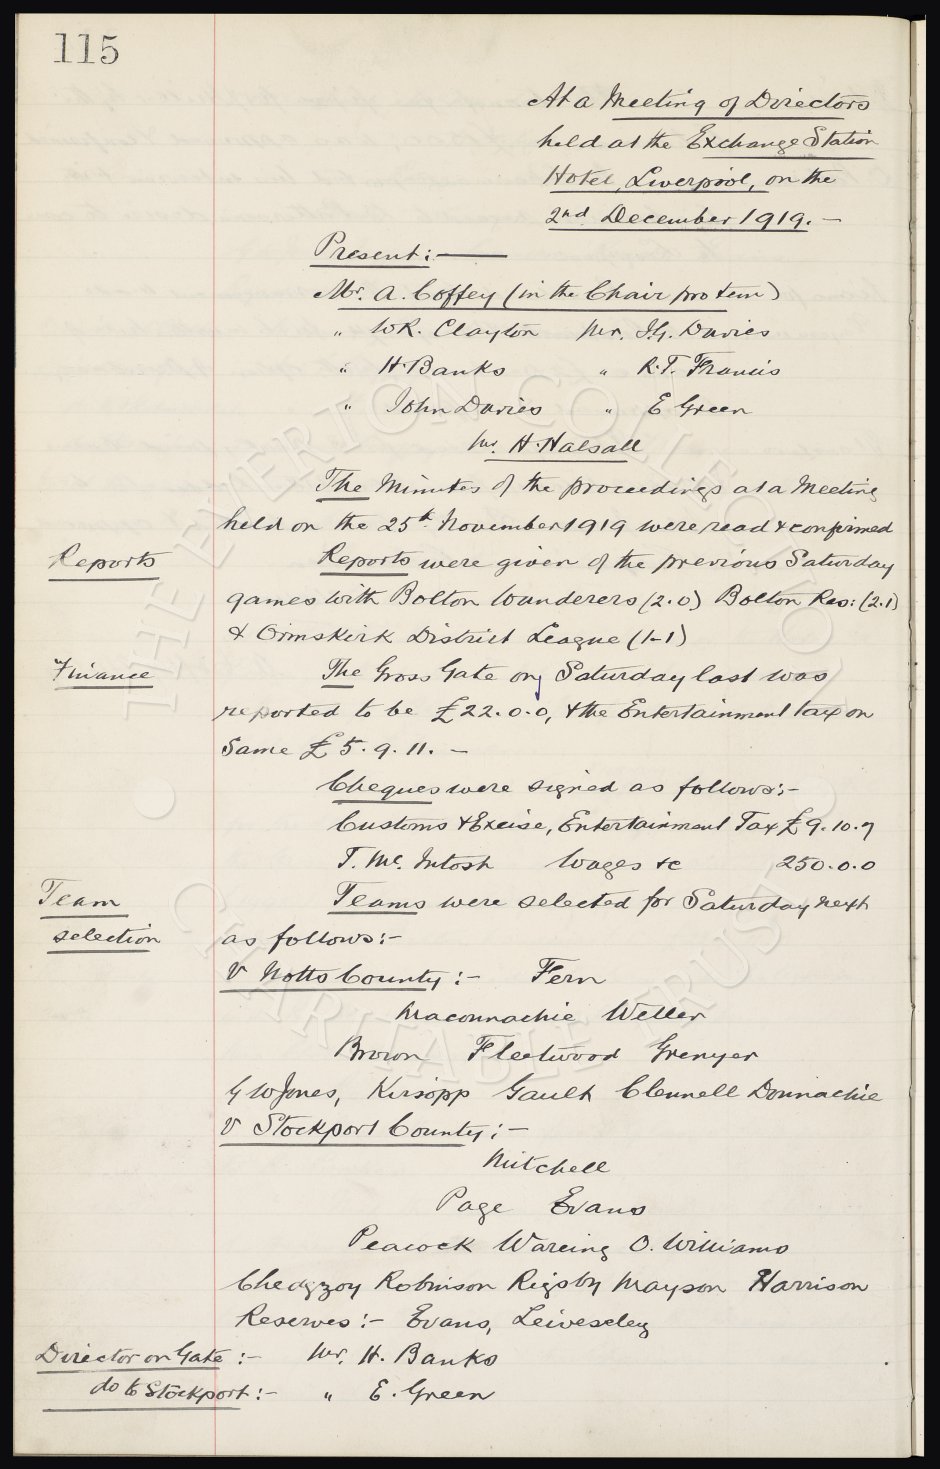 115
At a Meeting of Directors
held at the Exchange Station
Hotel, Liverpool, on the
2nd December 1919. —
Present: —
Mr. A. Coffey (in the Chair pro tem)
" W.R. Clayton Mr. J.G. Davies
" H. Banks " R.T. Francis
" John Davies " E Green
Mr. H. Halsall
The Minutes of the proceedings at a Meeting
held on the 25th November 1919 were read & confirmed
Reports
Reports were given of the previous Saturday
games with Bolton Wanderers (2.0) Bolton Res: (2.1)
& Ormskirk District League (1-1)
Finance
The Gross Gate on Saturday last was
reported to be £22.0.0, & the Entertainment tax on
same £5.9.11. —
Cheques were signed as follows:-
Customs & Excise, Entertainment Tax £9.10.7
T. Mc. Intosh Wages &c 250.0.0
Team
selection
Teams were selected for Saturday next
as follows:-
V Notts County:- Fern
Maconnachie Weller
Brown Fleetwood Grenyer
G W Jones, Kirsopp Gault Clennell Donnachie
V Stockport County:-
Mitchell
Page Evans
Peacock Wareing O. Williams
Chedgzoy Robinson Rigsby Mayson Harrison
Reserves:- Evans, Leivesley
Director on Gate:- Mr. H. Banks
do to Stockport:- " E. Green
THE EVERTON COLLECTION
CHARITABLE TRUST